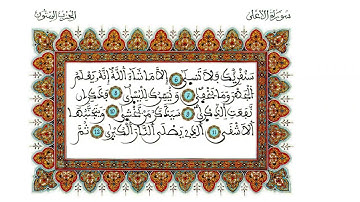 سورة الأعلى
الحزب الستون
سَنُقْرِئُكَ فَلَا تَنسَىٰ ٦ إِلَّا مَا شَاءَ اللَّهُ إِنَّهُ يَعْلَمُ
الْجَهْرَ وَمَا يَخْفَىٰ ٧ وَنُيَسِّرُكَ لِلْيُسْرَىٰ ٨ فَذَكِّرْ إِن
نَّفَعَتِ الذِّكْرَىٰ ٩ سَيَذَّكَّرُ مَن يَخْشَىٰ ١٠ وَيَتَجَنَّبُهَا
الْأَشْقَى ١١ الَّذِي يَصْلَى النَّارَ الْكُبْرَىٰ ١٢ ثُمَّ